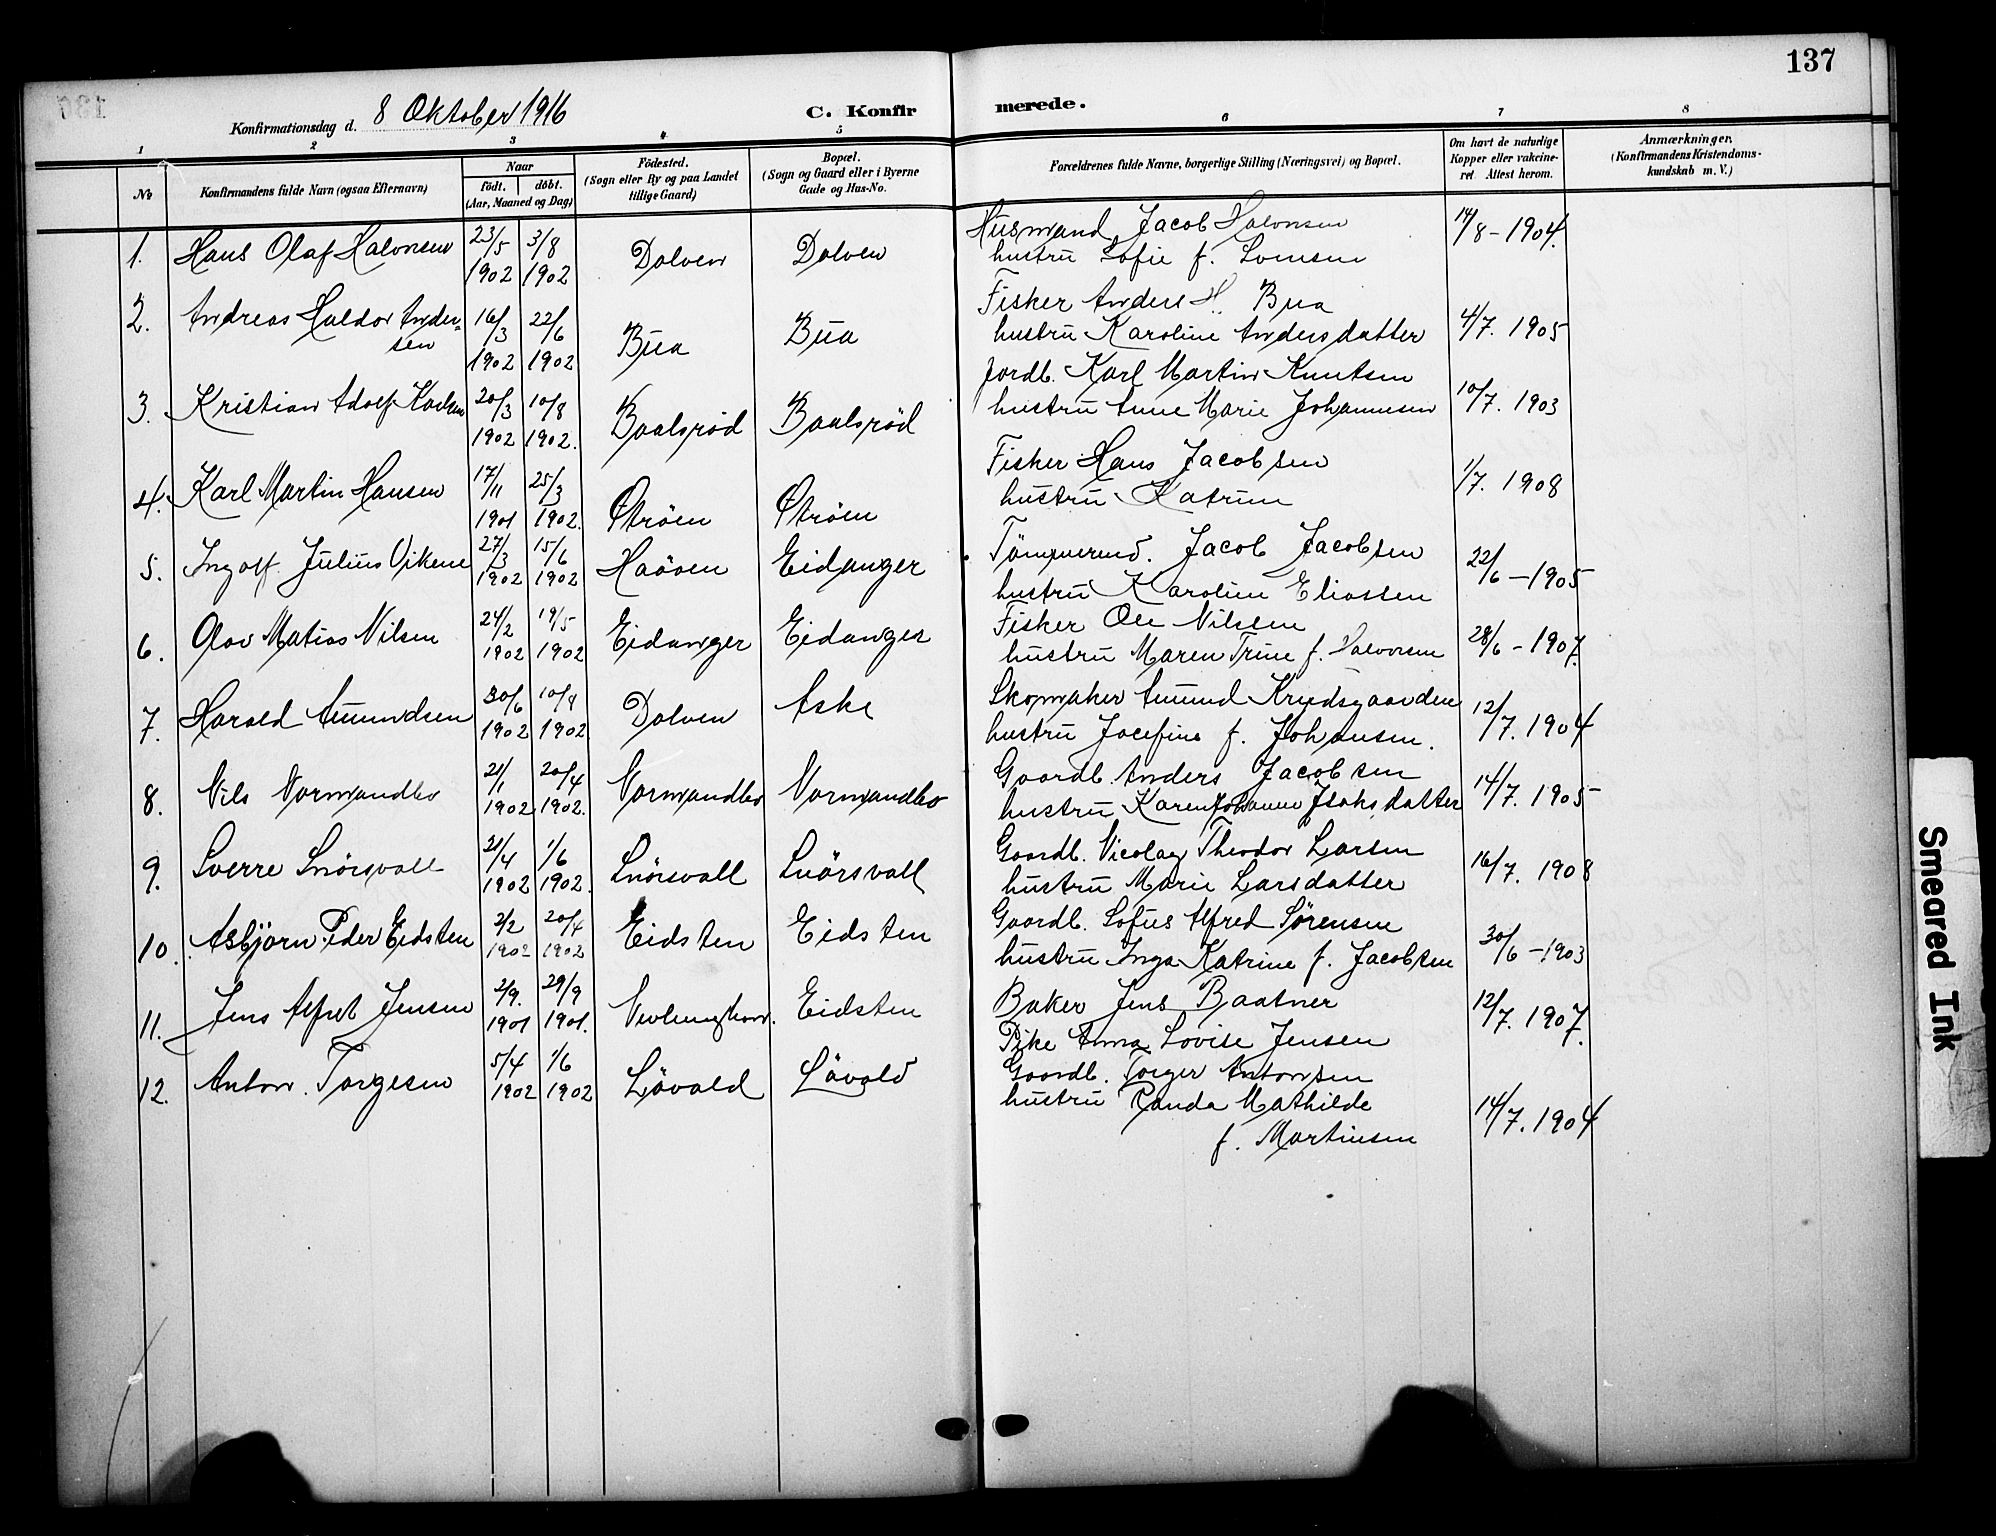 137
Konfirmationsdag d. 8 Oktober 1916
C. Konfirmerede.
1 2 3 4 5 6 7 8
No
Konfirmandens fulde Navn (ogsaa Efternavn)
Naar
födt. döbt.
(Aar, Maaned og Dag)
Födested.
(Sogn eller By og paa Landet
tillige Gaard)
Bopæl.
(Sogn og Gaard eller i Byerne
Gade og Hus-No.
Forældrenes fulde Navne, borgerlige Stilling (Næringsvei) og Bopæl.
Om havt de naturlige
Kopper eller vakcine-
ret Attest herom.
Anmærkninger.
(Konfirmandens Kristendoms-
kundskab m. V.)
1. Hans Olaf Halvorsen 23/5 1902 3/8 1902 Dolven Dolven Husmand Jacob Halvorsen 14/8 - 1904.
hustru Sofie f.
2. Andreas Haldor Ander-
sen 16/3 1902 22/6 1902 Bua Bua Fisker Anders H. Bua
hustru Karoline Andersdatter 4/7. 1905
3. Kristian Adolf Karlsen 20/3 1902 10/8 1902. Baalsröd Baalsröd Jordb. Karl Martin Knutsen
hustru Anne Marie Johannesen 10/7. 1903
4. Karl Martin Hansen 17/11 1901 25/3 1902. Ströen Ströen Fisker Hans Jacobsen
hustru Katrine 1/7. 1908
5. Ingolf Julius Vikene 27/3 1902 15/6 1902 Haöven Eidanger Tömmermd. Jacob Jacobsen
hustru Karoline Eliassen 22/6 - 1905
6. Olav Matias Nilsen 24/2 1902 19/5 1902 Eidanger Eidanger Fisker Ole Nilssen
hustru Maren Trine f. Halvorsen 28/6 - 1907.
7. Harald Amundsen 30/6 1902 10/8 1902 Dolven Aske Skomaker Amund
hustru Josefine f. Johansen. 12/7. 1904
8. Nils Normandbo 21/1 1902 20/4 1902. Normandbo Normandbo Gaardb. Anders Jacobsen
hustru Karen Johanne Isaksdatter 14/7. 1905
9. Sverre Snörsvall 21/4 1902 1/6 1902. Snörsvall Snörsvall Gaardb. Nicolay Theodor Larsen
hustru Marie Larsdatter 16/7. 1908
10. Asbjörn Peder Eidsten 2/2 1902 20/4 1902 Eidsten Eidsten Gaardb. Sofus Alfred Sörensen
hustru Inga Katrine f. Jacobsen 30/6 - 1903
11. Jens Alfred Jensen 2/9. 1901 29/9 1901. Nevlunghavn. Eidsten Baker Jens Baatner
Pike Anna Lovise Jensen 12/7. 1907.
12. Anton Torgesen 5/4 1902 1/6 1902 Lövald Lövald Gaardb. Torger Antonsen
hustru Randa Mathilde
f. Martinsen 14/7. 1904
Smeared Ink